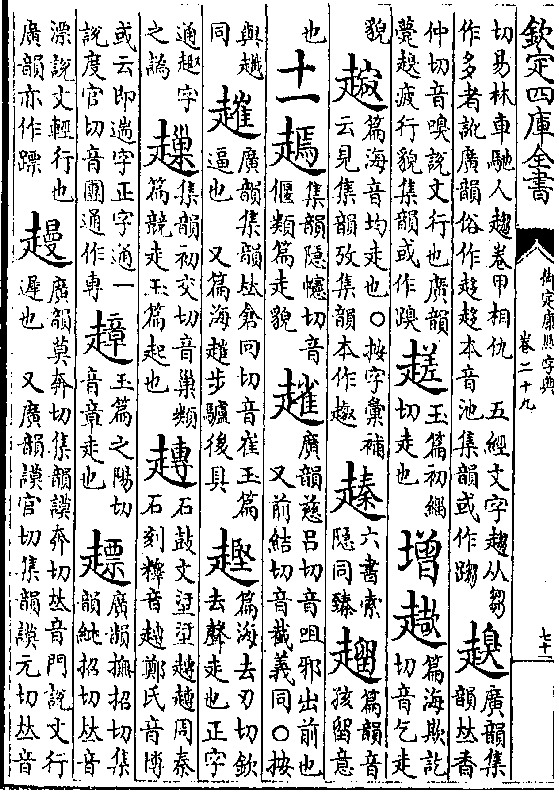 欽定四庫全書
御定康熙字典
卷二十九
七十一
切易林車馳人趨卷甲相仇　五經文字趨从芻
作多者訛廣韻俗作趍趍本音池集韻或作
廣韻集
韻𠀤香
仲切音嗅說文行也廣韻
疲行貌集韻或作
玉篇初縐
切走也
增
篇海欺訖
切音乞走
貌
篇海音均走也○按字彙補
云見集韻攷集韻本作趣
六書索
隱同臻
篇韻音
孩留意
也
十一
集韻隱幰切音
偃類篇走貌
廣韻慈呂切音咀邪出前也
又前結切音截義同○按
與
同
廣韻集韻𠀤倉回切音崔玉篇
逼也　又篇海步驢後具
篇海去刃切欽
去聲走也正字
通字
之譌
集韻初交切音巢類
篇競走玉篇起也
石鼓文周秦
石刻釋音鄭氏音博
或云即遄字正字通一
說度官切音團通作專
玉篇之陽切
音章走也
廣韻撫招切集
韻紕招切𠀤音
漂說文輕行也
廣韻亦作
廣韻莫奔切集韻謨奔切𠀤音門說文行
遲也　又廣韻謨官切集韻謨元切𠀤音